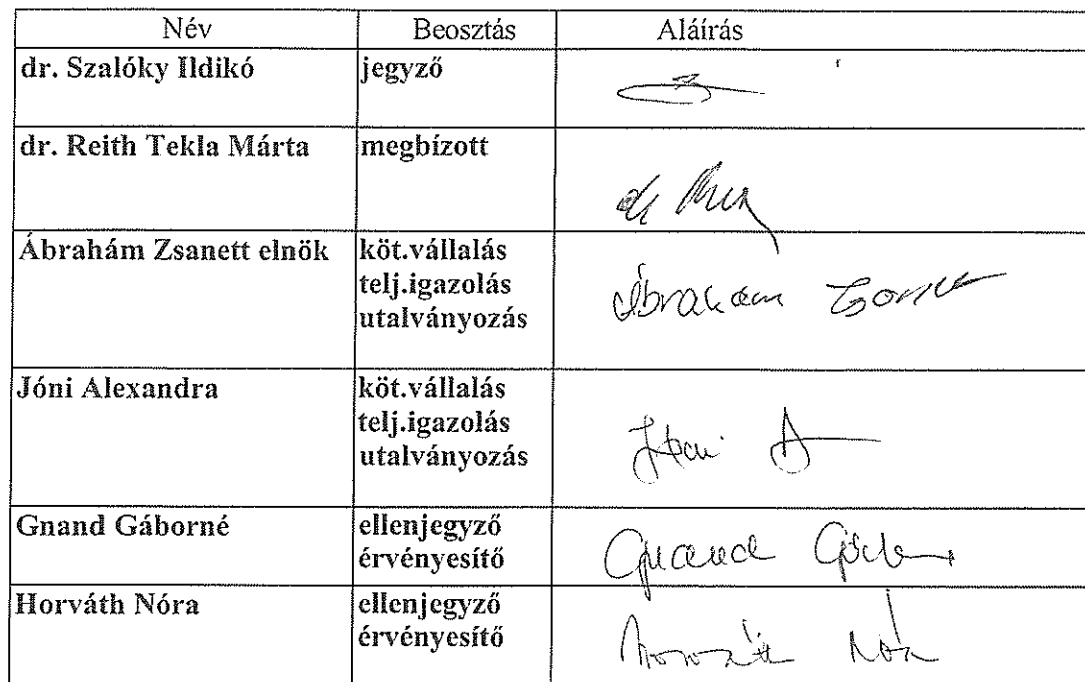 Név Beosztás Aláírás
dr. Szalóky Ildikó jegyző
dr. Reith Tekla Márta megbízott
dr
Ábrahám Zsanett elnök köt.vállalás
telj.igazolás
utalványozás
Ábrahám
Jóni Alexandra köt.vállalás
telj.igazolás
utalványozás
Jóni A
Gnand Gáborné ellenjegyző
érvényesítő
Gnand Gábor
Horváth Nóra ellenjegyző
érvényesítő
Horváth Nóra